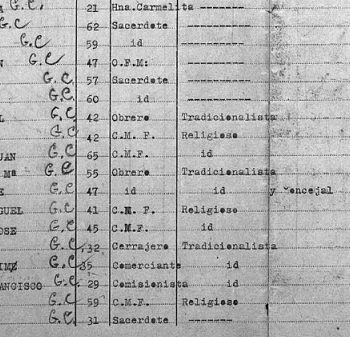 G.C. 21 Hna.Carmelita --------
G.C 62 Sacerdote ----------
G.C 59 id ----------
G.C 47 O.F.M: ----------
G.C. 57 Sacerdote ----------
G.C. 60 id ----------
G.C 42 Obrero Tradicionalista
G.C 42 C.M. F. Religioso
UAN G.C 65 C.M.F. id
Mª G.C 55 Obrero Tradicionalista
G.C 47 id id y concejal
GUEL G.C 41 C.M. F. Religioso
OSE G.C 45 C.M.F. id
G.C 32 Cerrajero Tradicionalista
IME G.C 35 Comerciante id
ANCISCO G.C. 29 Comisionista id
G.C 59 C.M.F. Religioso
G.C. 31 Sacerdote -------